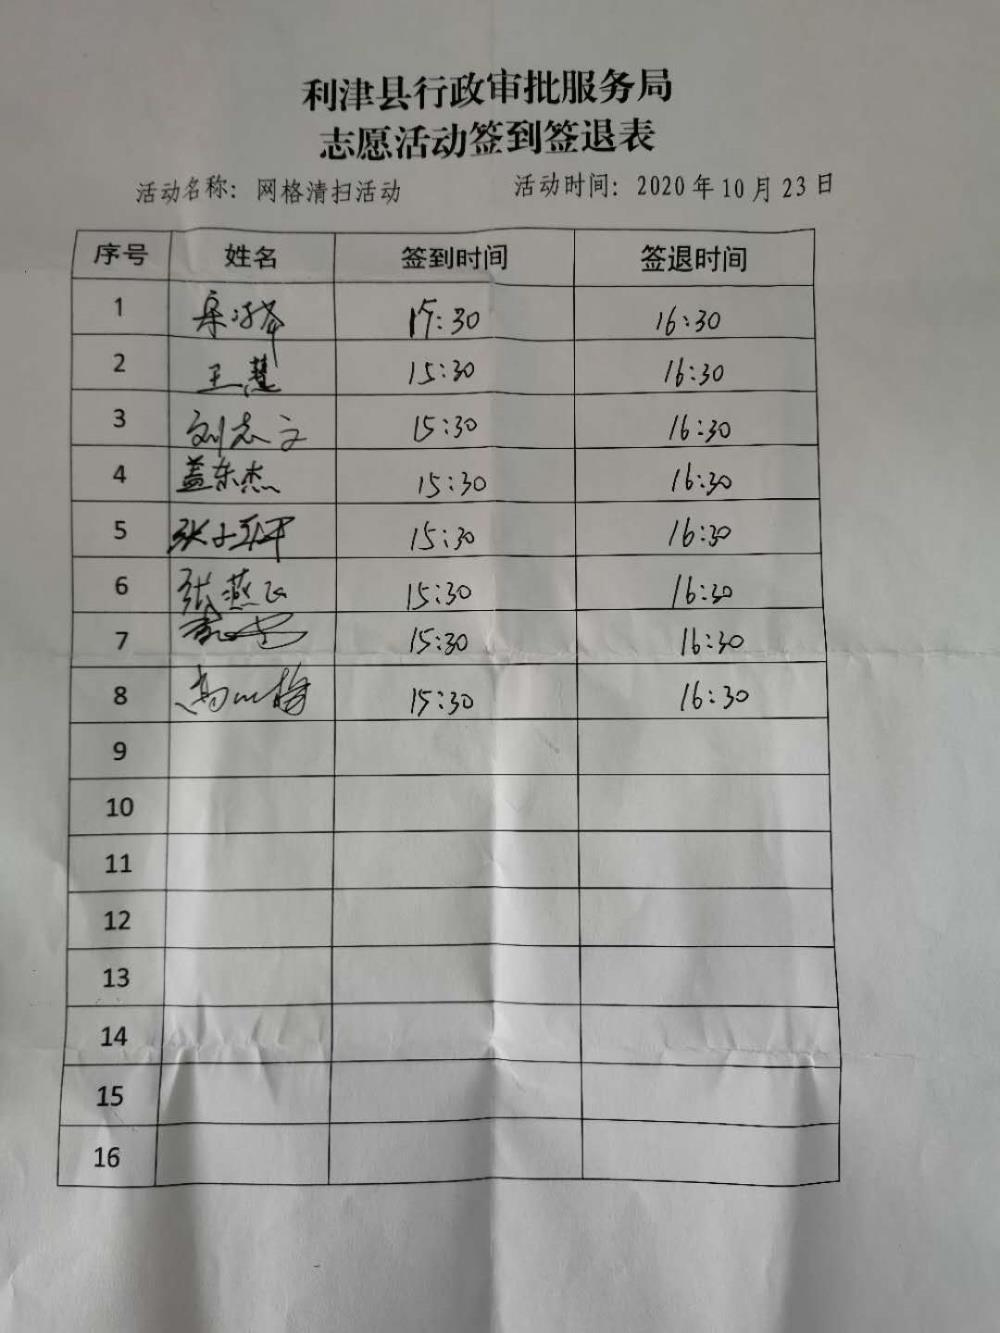 利津县行政审批服务局
志愿活动签到签退表
活动名称：网格清扫活动 活动时间：2020年10月23日
序号 姓名 签到时间 签退时间
1 15:30 16:30
2 王慧 15:30 16:30
3 刘志文 15:30 16:30
4 盖东杰 15:30 16:30
5 张子轩 15:30 16:30
6 张燕飞 15:30 16:30
7 15:30 16:30
8 15:30 16:30
9
10
11
12
13
14
15
16